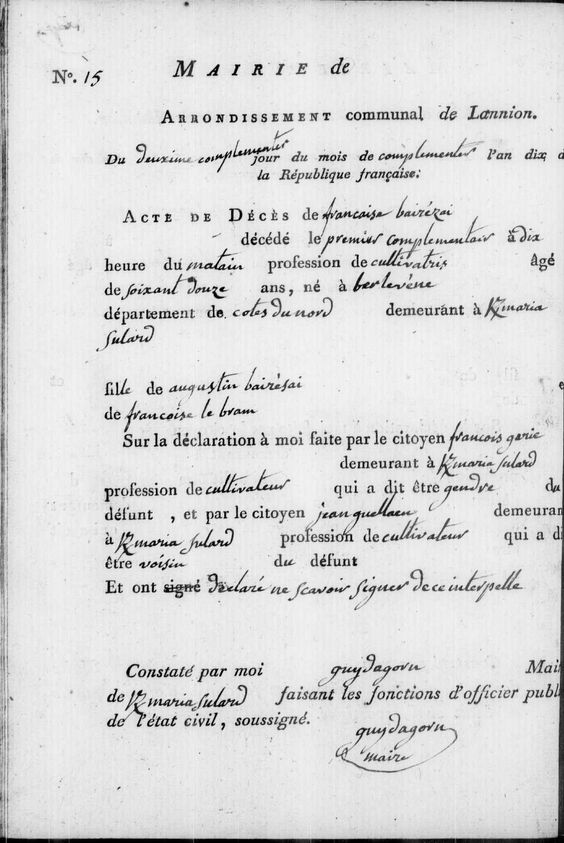 Nº. 15
MAIRIE de
ARRONDISSEMENT communal de Lannion.
Du deuxime complementer jour du mois de complementer l'an dix d
la République française:
ACTE DE DÉCÈS de francaise bairézai
décédé le premier complementair à dix
heure du matain profession de cultivatris âgé
de soixant douze ans, né à berlevéne
département de cotes du nord demeurant à K maria
sulard
fille de augustin bairésai
de francoise le bram
Sur la déclaration à moi faite par le citoyen francois garic
demeurant à K maria sulard
profession de cultivateur qui a dit être gendre du
défunt , et par le citoyen jean guellaen demeuran
à K maria sulard profession de cultivateur qui a di
être voisin du défunt
Et ont signé déclaré ne scavoir signer de ce interpelle
Constaté par moi guy dagorn Mai
de K maria sulard faisant les fonctions d'officier publ
de l'état civil, soussigné.
guy dagorn
maire